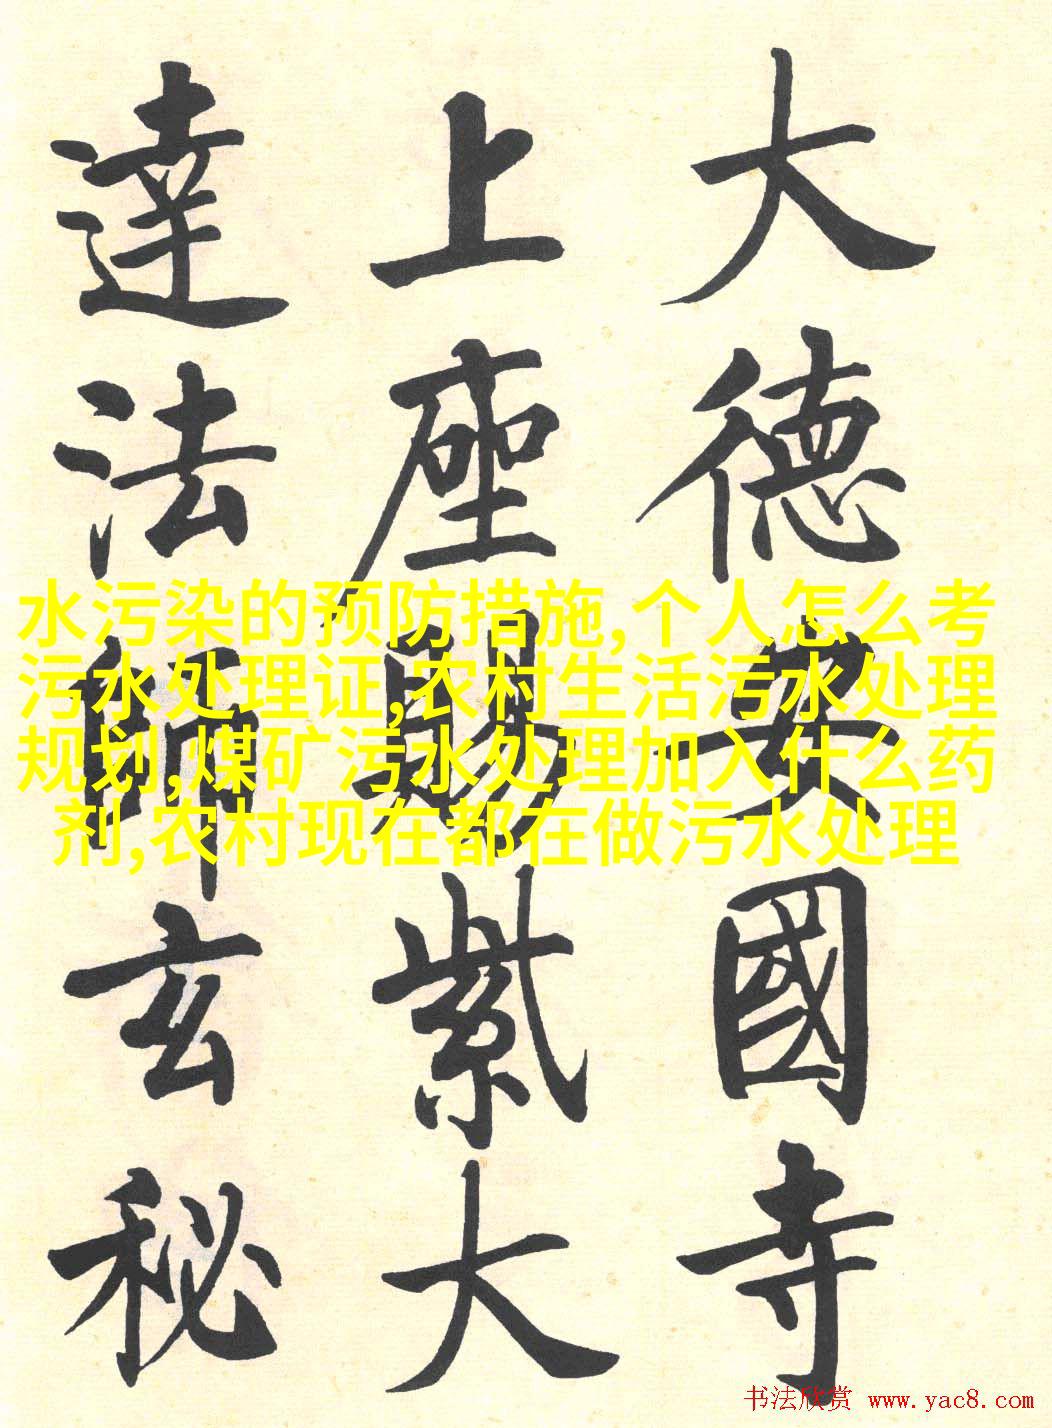 大德安國寺
上座賜紫大
達法師玄秘
水污染的预防措施,个人怎么考
污水处理证,农村生活污水处理
规划,煤矿污水处理加入什么药
剂,农村现在都在做污水处理
书法欣赏 www.yac8.com